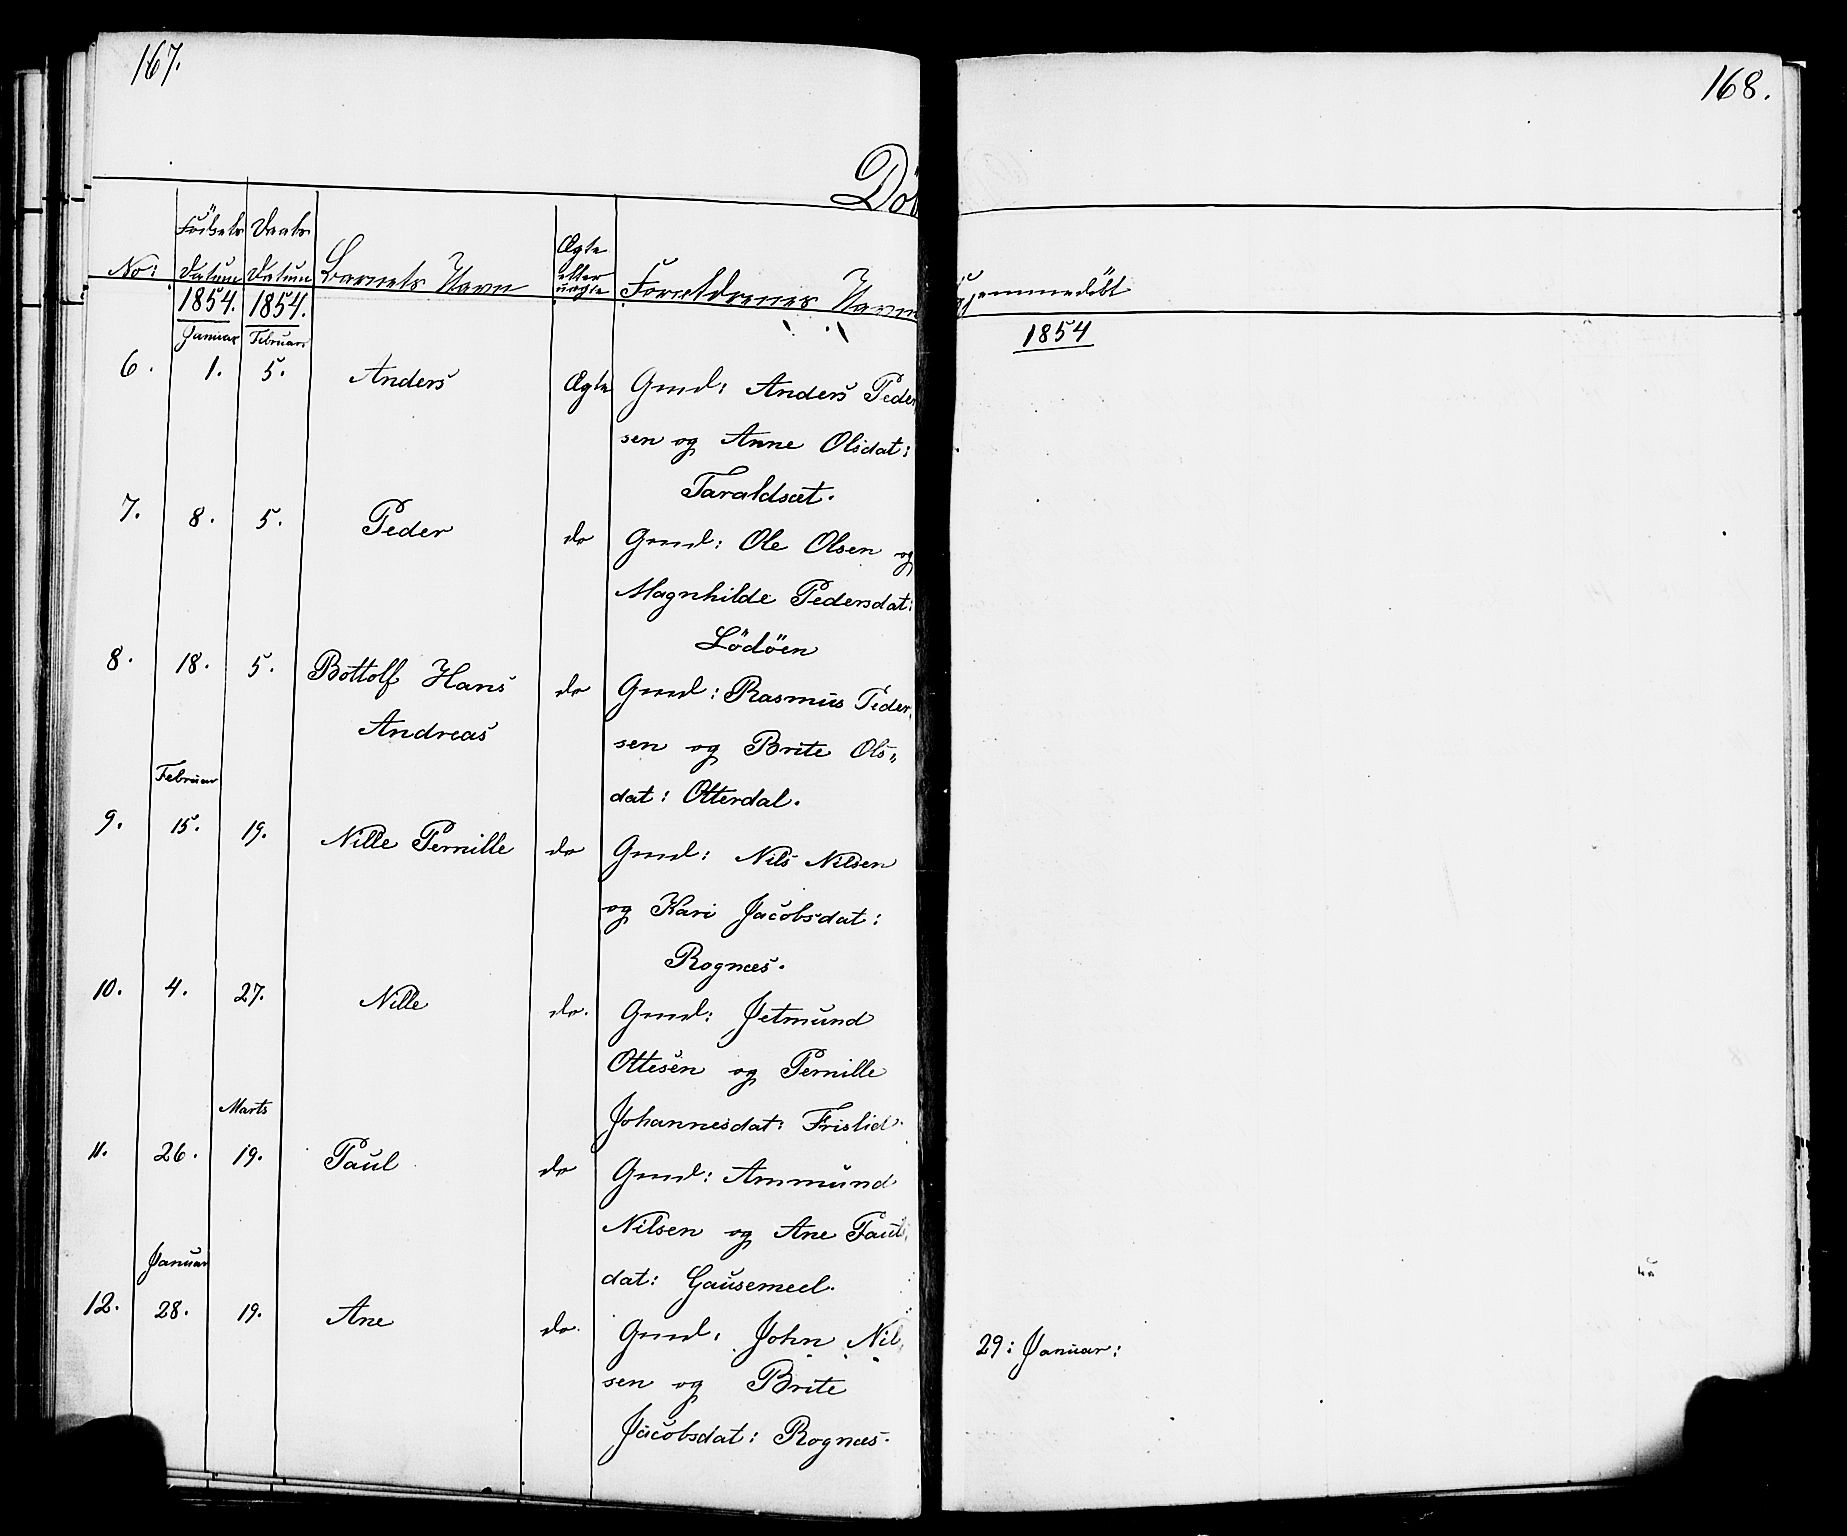 167.
Dö
No: Födsels Datum Daabs Datum Barnets Navn Ægte eller uægte Forældrenes Navn
1854. 1854.
Januar Februar
6. 1. 5. Anders Ægte Gmd: Anders Peder
sen og Anne Olsdat:
Taraldsæt.
7. 8. 5. Peder do Gmd: Ole Olsen og
Magnhilde Pedersdat:
Lödöen
8. 18. 5. Bottolf Hans do Gmd: Rasmus Peder
Andreas sen og Brite Ols„
dat: Otterdal.
Februar
9. 15. 19. Nille Pernille do Gmd: Nils Nilsen
og Kari Jacobsdat:
Rognæs.
10. 4. 27. Nille do. Gmd: Jetmund
Ottesen og Pernille
Johannesdat: Frislid
Marts
11. 26. 19. Paul do Gmd: Ammund
Nilsen og Ane Pauls
dat: Gausemeel.
Januar
12. 28. 19. Ane do. Gmd: John Nil
sen og Brite
Jacobsdat: Rognæs.
168.
Hjemmedöbt
1854
29: Januar: